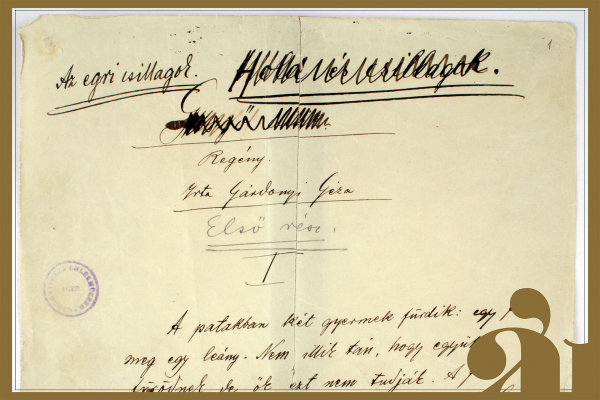 Az egri csillagok. csillagok.
1
Regény.
Irta Gárdonyi Géza
Első rész.
I
A patakban két gyermek fürdik: egy f
meg egy leány. Nem illik tán, hogy együt
fürödnek, de ők ezt nem tudják. A